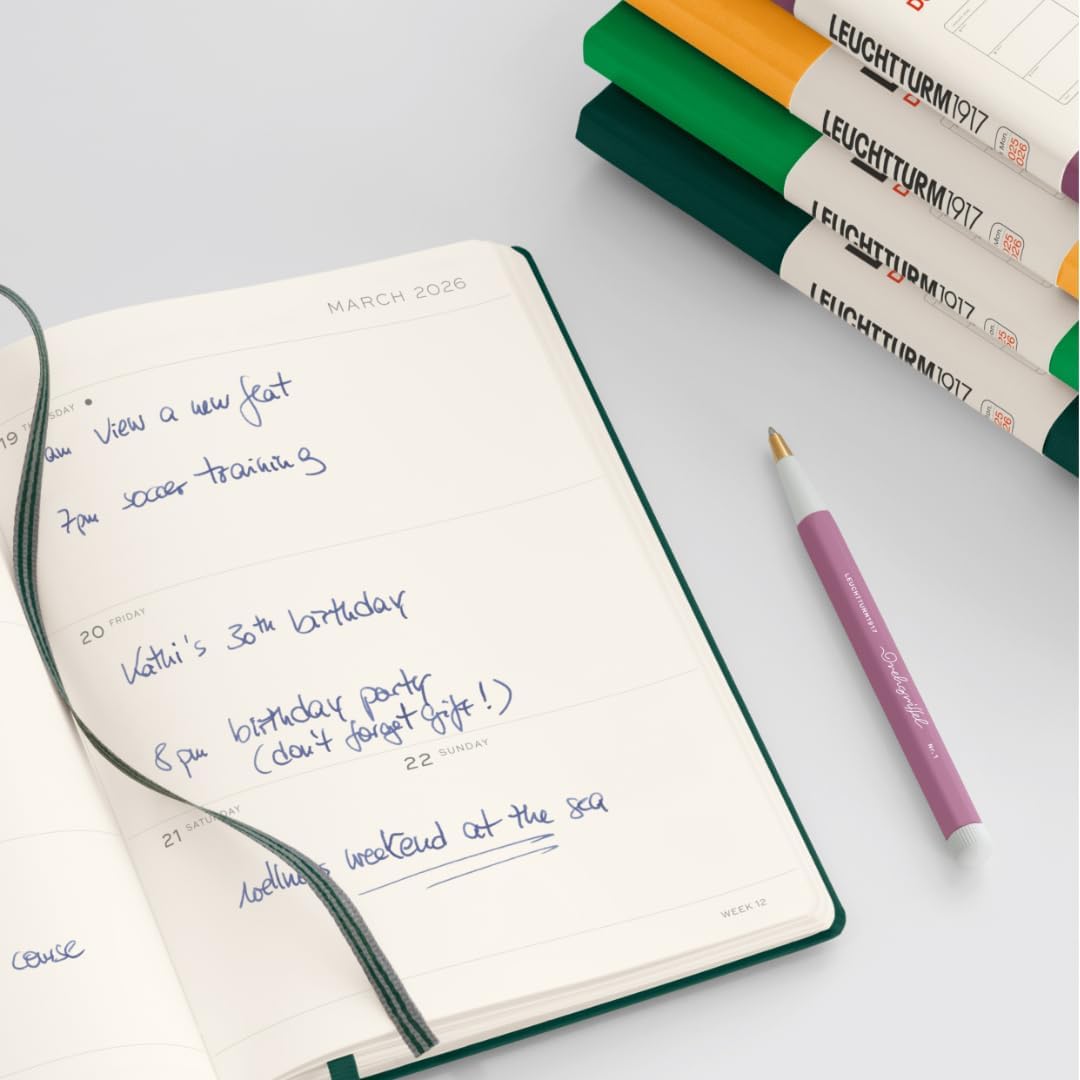 MARCH 2026
19 THURSDAY
am View a new flat
7pm soccer training
20 FRIDAY
Kathi's 30th birthday
8pm birthday party
(don't forget gift!)
21 SATURDAY
22 SUNDAY
wellness weekend at the sea
WEEK 12
course
LEUCHTTURM1917
LEUCHTTURM1917
LEUCHTTURM1917
LEUCHTTURM1917
LEUCHTTURM1917
Drehgriffel
Nr. 1